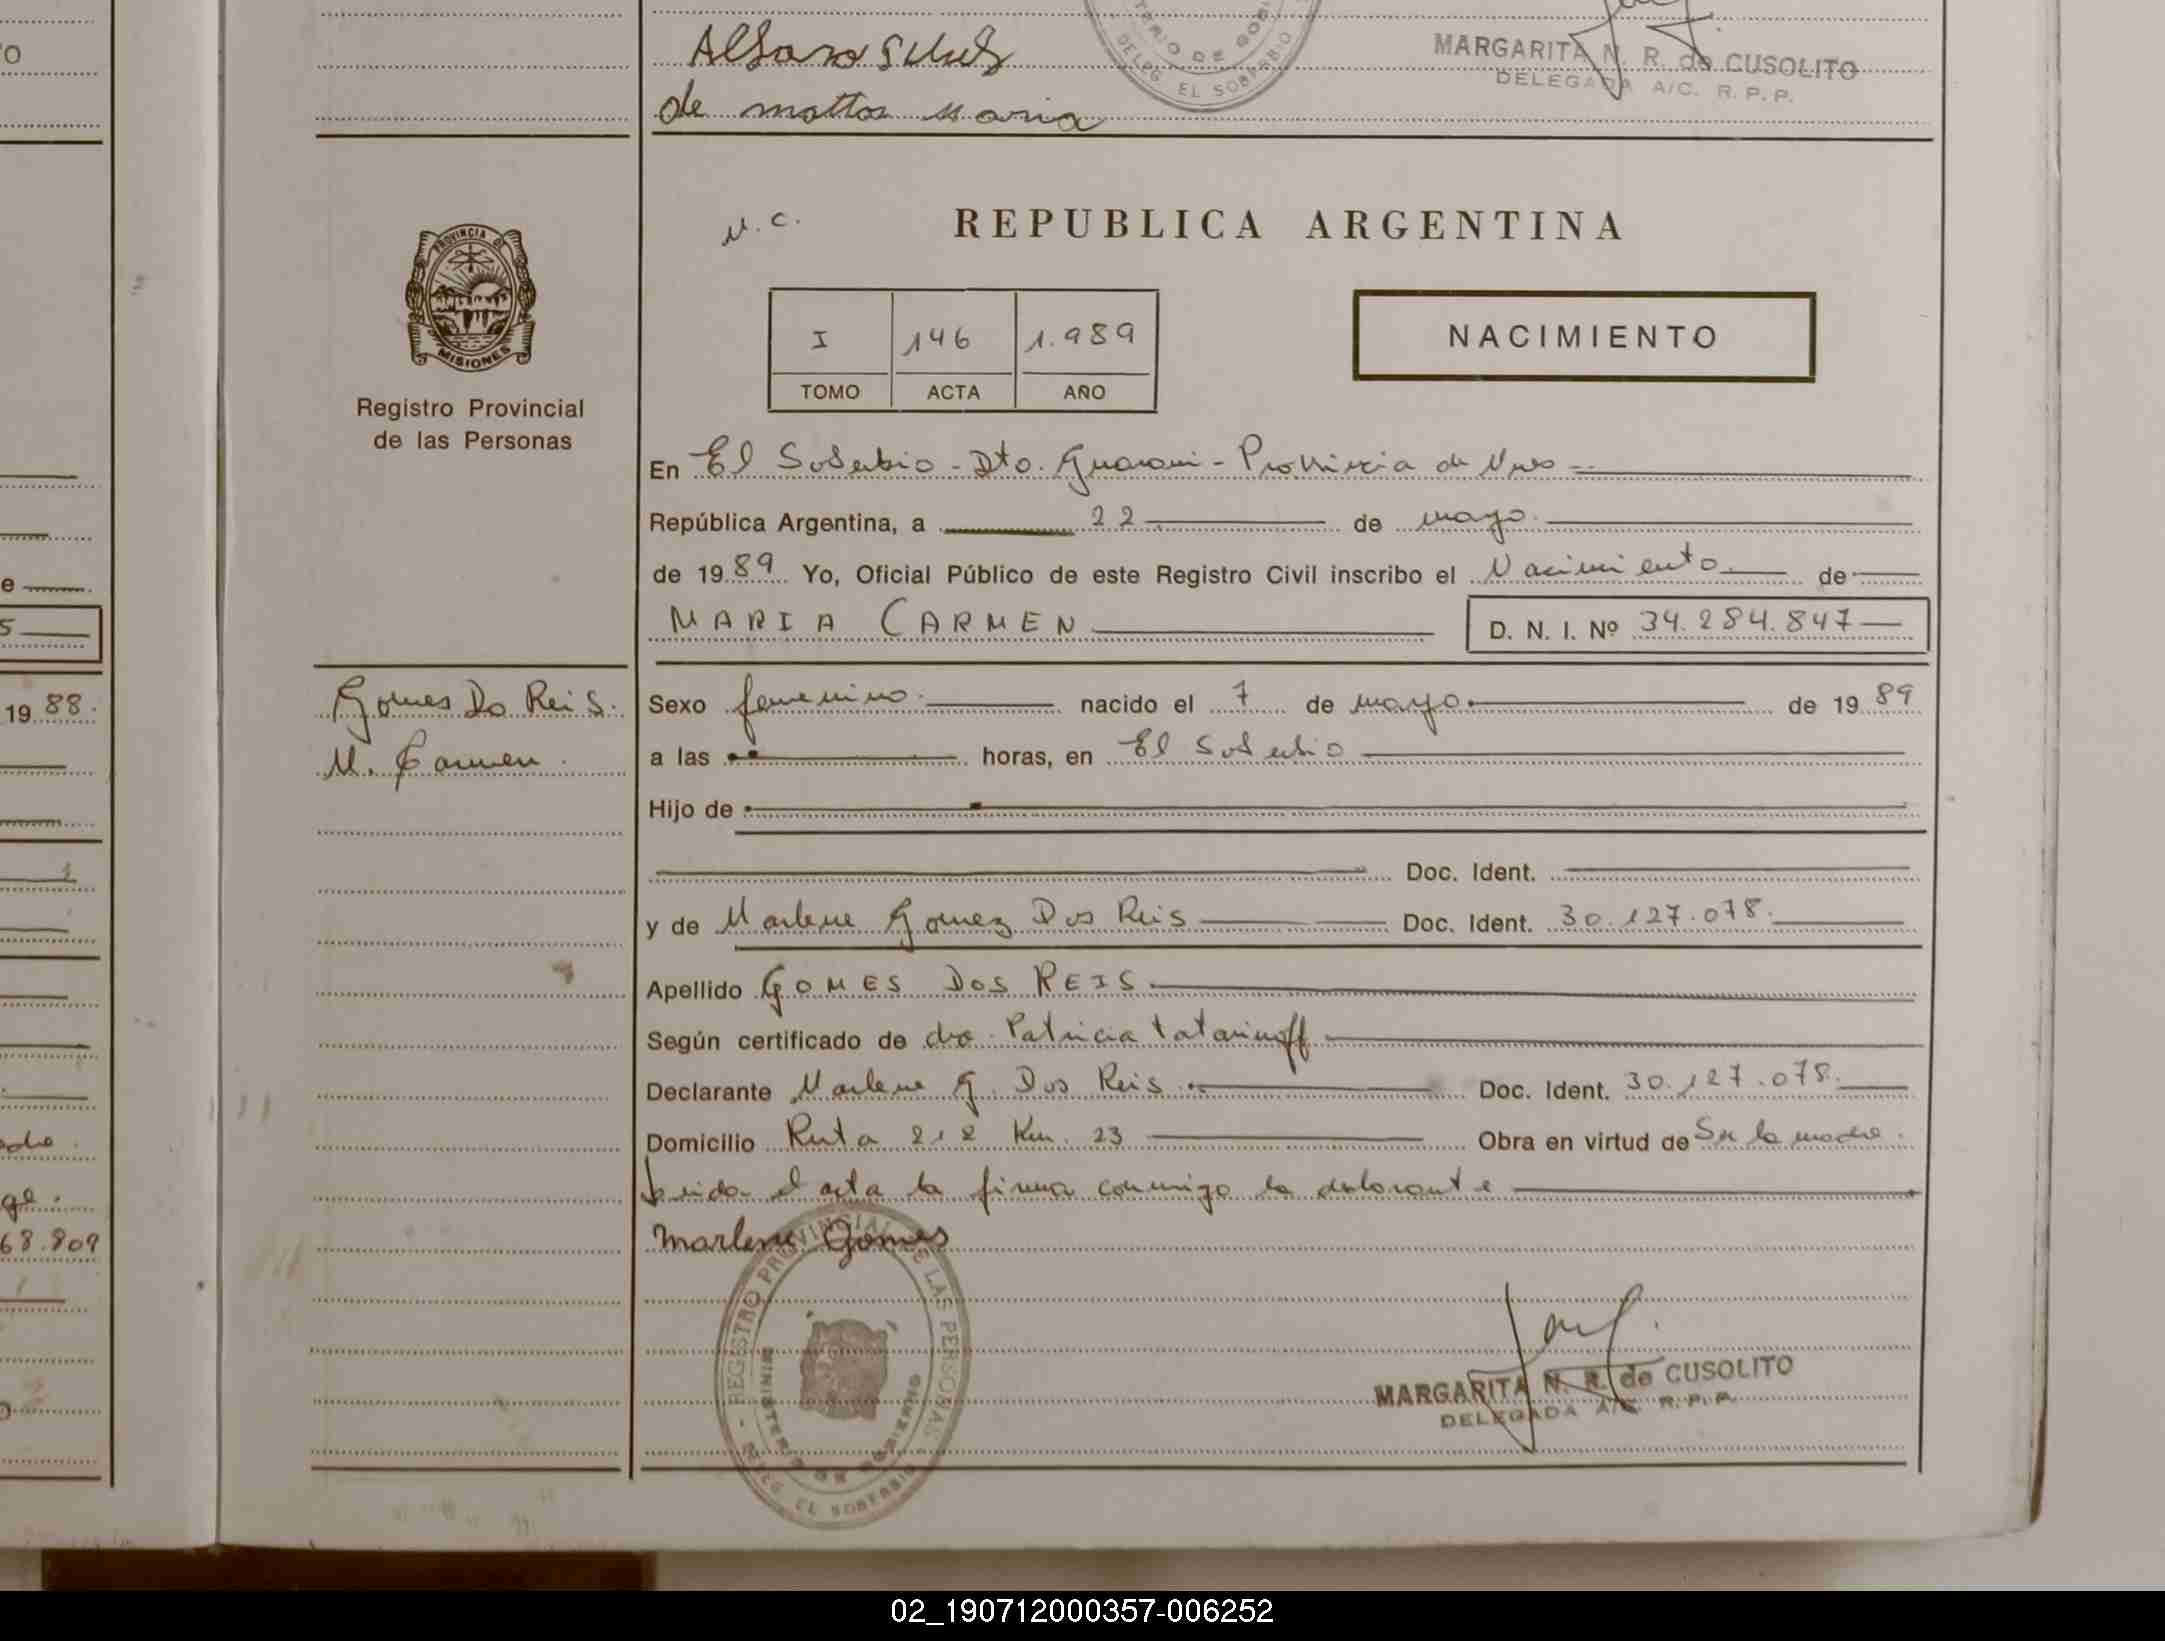 Alfaro
de mattos Maria
TERIO DE GOBI
DELEG. EL SOBERBIO
MARGARITA N. R. de CUSOLITO
DELEGADA A/C. R. P. P.
PROVINCIA DE
MISIONES
Registro Provincial
de las Personas
REPUBLICA ARGENTINA
I 146 1.989
TOMO ACTA AÑO
NACIMIENTO
En El Soberbio - Dto. Guarani - Provincia de Mnes
República Argentina, a 22 de mayo
de 1989 Yo, Oficial Público de este Registro Civil inscribo el Nacimiento de
MARIA CARMEN D. N. I. Nº 34.284.847
Gomes Do Reis.
M. Carmen
Sexo femenino nacido el 7 de mayo de 1989
a las horas, en El Soberbio
Hijo de
Doc. Ident.
y de Marlene Gomez Dos Reis Doc. Ident. 30.127.078.
Apellido GOMES DOS REIS
Según certificado de dra. Patricia Tatarinoff
Declarante Marlene G. Dos Reis Doc. Ident. 30.127.078.
Domicilio Ruta 212 Km. 23 Obra en virtud de Ser la madre.
Leida el acta la firma conmigo la declarante
Marlene Gomes
REGISTRO PROVINCIAL DE LAS PERSONAS
MINISTERIO DE GOBIERNO
DELEG. EL SOBERBIO
MARGARITA N. R. de CUSOLITO
DELEGADA A/C. R. P. P.
19 88.
68.809
02_190712000357-006252